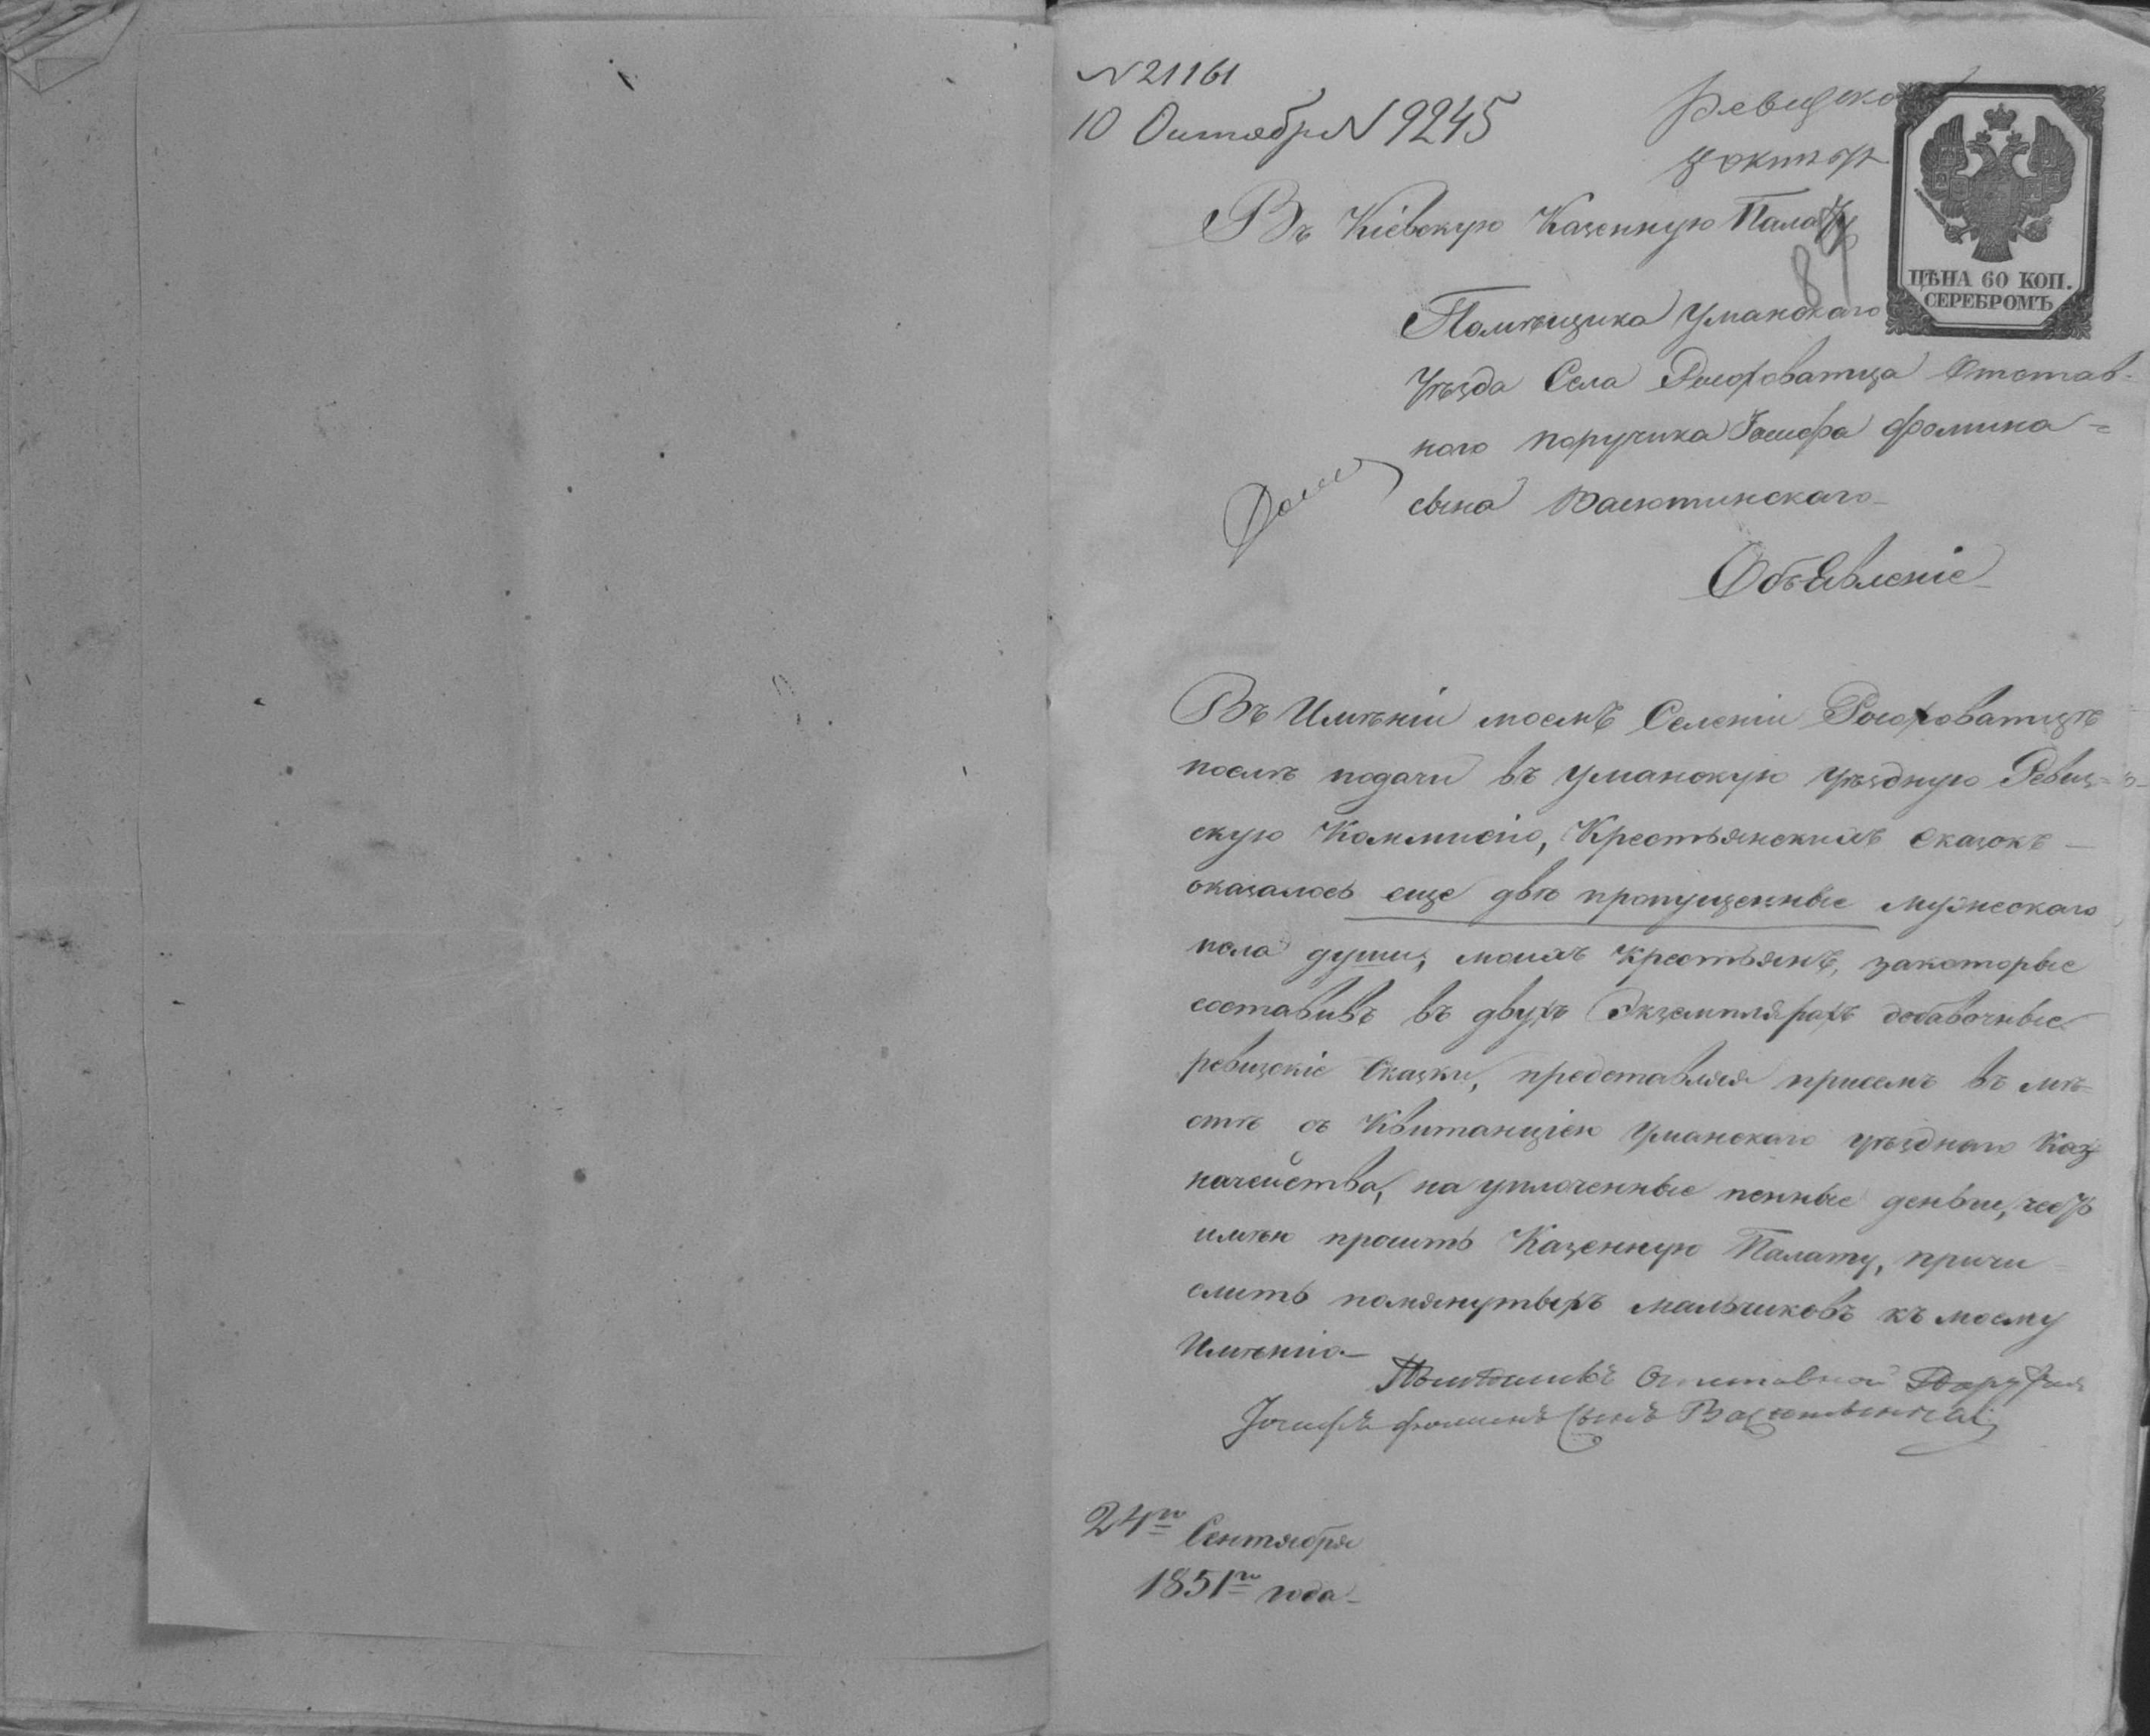 N 21161
10 Октября N 9245
Ревизско
Въ Кіевскую Казенную Палату
ЦѢНА 60 КОП.
СЕРЕБРОМЪ
Помѣщика Уманскаго
Уѣзда Села Рогховатца Отстав-
ного поручика Іосифа Фомина
сына Васютинскаго
Объявленіе
Въ Имѣніи моемъ Селеніи Рогховатцѣ
послѣ подачи въ Уманскую уѣздную Ревиз-
скую Коммисію, Крестьянскихъ сказокъ
оказалось еще двѣ пропущенные мужескаго
пола души, моихъ Крестьянъ, закоторые
составивъ въ двухъ Экземплярахъ добавочные
ревизскіе Сказки, представляя присемъ въ мѣ-
стѣ съ Квитанціею Уманскаго уѣзднаго Каз
начейства, на уплоченные пенные деньги, честь
имѣю просить Казенную Палату, причи
слить помянутыхъ мальчиковъ къ моему
Имѣнію.
Помѣщикъ Отставной Поручик
Іосифъ Фоминъ Сынъ Васютинскій
24го Сентября
1851го года